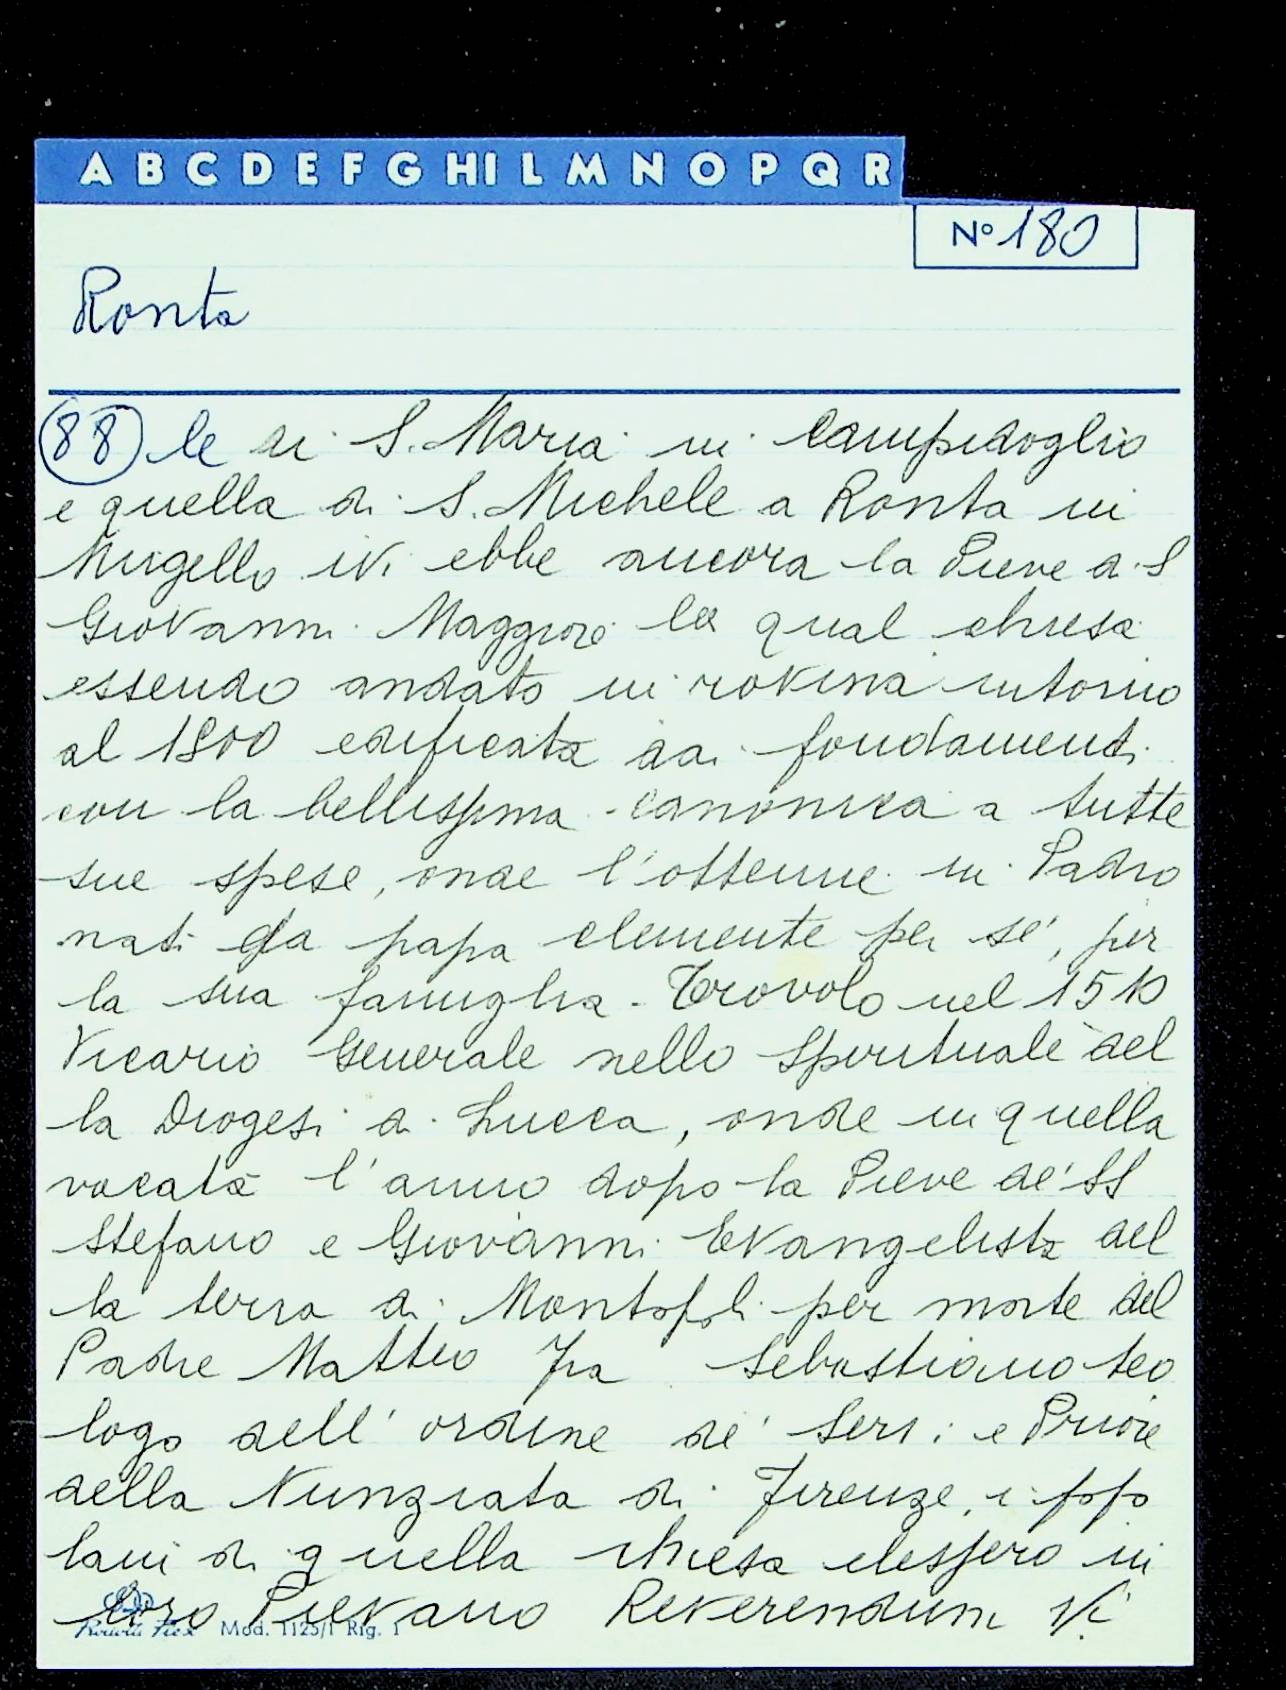 A B C D E F G H I L M N O P Q R
N° 180
Ronta
88 le di S. Maria in Campidoglio
e quella di S. Michele a Ronta in
Mugello ivi ebbe ancora la Pieve di S
Giovanni Maggiore la qual chiesa
essendo andato in rovina intorno
al 1500 edificata dai fondamenti
con la bellissima canonica a tutte
sue spese, onde l'ottenne in Padro
nati da papa clemente per sé, per
la sua famiglia. Trovolo nel 1510
Vicario Generale nello Spirituale del
la Diogesi di Lucca, onde in quella
vacata l'anno dopo la Pieve de' SS
Stefano e Giovanni Evangelista del
la terra di Montopoli per morte del
Padre Matteo Fra Sebastiano teo
logo dell'ordine de' Servi e Priore
della Nunziata di Firenze, i popo
lani di quella chiesa elessero in
loro Pievano Reverendum V.
Mod. 1125/1 Rig. 1